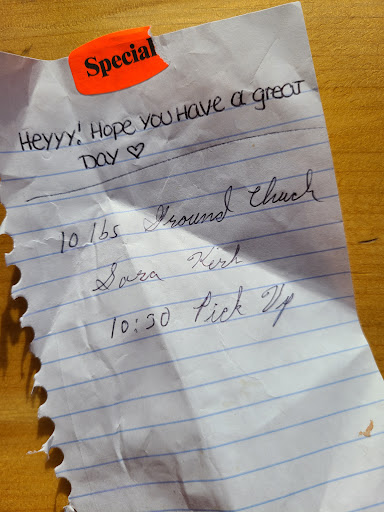 Special
Heyyy! Hope you have a great
Day ♡
10 lbs Ground Chuck
Sara Kirk
10:30 Pick Up